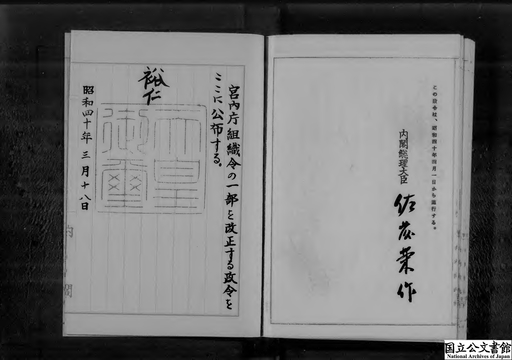 この政令は、昭和四十年四月一日から施行する。
内閣総理大臣
佐藤栄作
宮内庁組織令の一部を改正する政令を
ここに公布する。
裕仁
天皇
御璽
昭和四十年三月十八日
内閣
国立公文書館
National Archives of Japan